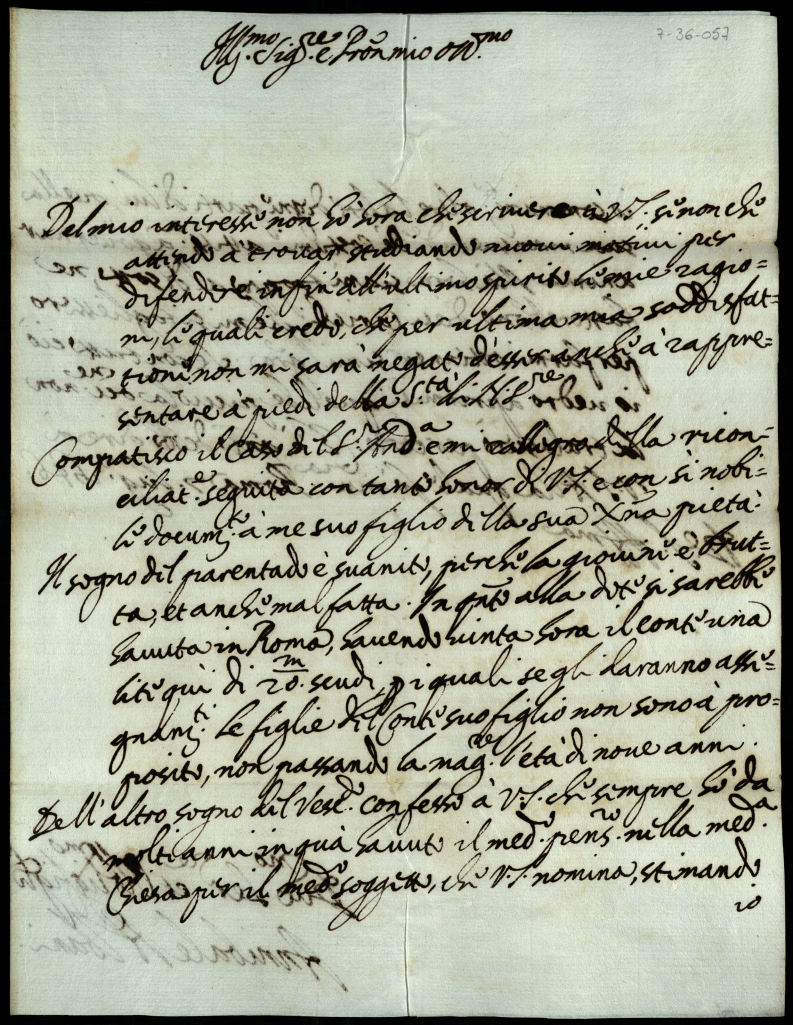 7-36-057
Ill.mo Sig.re e Pron mio oss.mo
Del mio interesse non hò hora che scrivere à V.S. se non che
attendo à trovar studiando nuovi motivi per
difender infin' all' ultimo spirito le mie ragio=
ni, le quali credo, che per ultima mia soddisfat=
tione non mi sarà negato d'esser anche à rappre=
sentare à piedi della S.tà di N.S.re
Compatisco il caso del S.r And.a e mi rallegro della ricon=
ciliat.e seguita con tanto honor di V.S. e con sì nobi=
le docum.to à me suo figlio della sua Xna pietà.
Il sogno del parentado è svanito, perche la giovine è brut=
ta, et anche mal fatta. In qnto alla dote si sarebbe
havuta in Roma, havendo vinta hora il Conte una
lite quì di 20.m scudi, p i quali se gli daranno asse=
gnam.ti. Le figlie del Conte suo figlio non sono à pro=
posito, non passando la mag.re l'età di nove anni.
Dell' altro sogno del Vesc.do confesso à V.S. che sempre hò da
molti anni in quà havuto il med.o pens.ro nella med.a
Chiesa per il med.o soggetto, che V.S. nomina, stimando
io